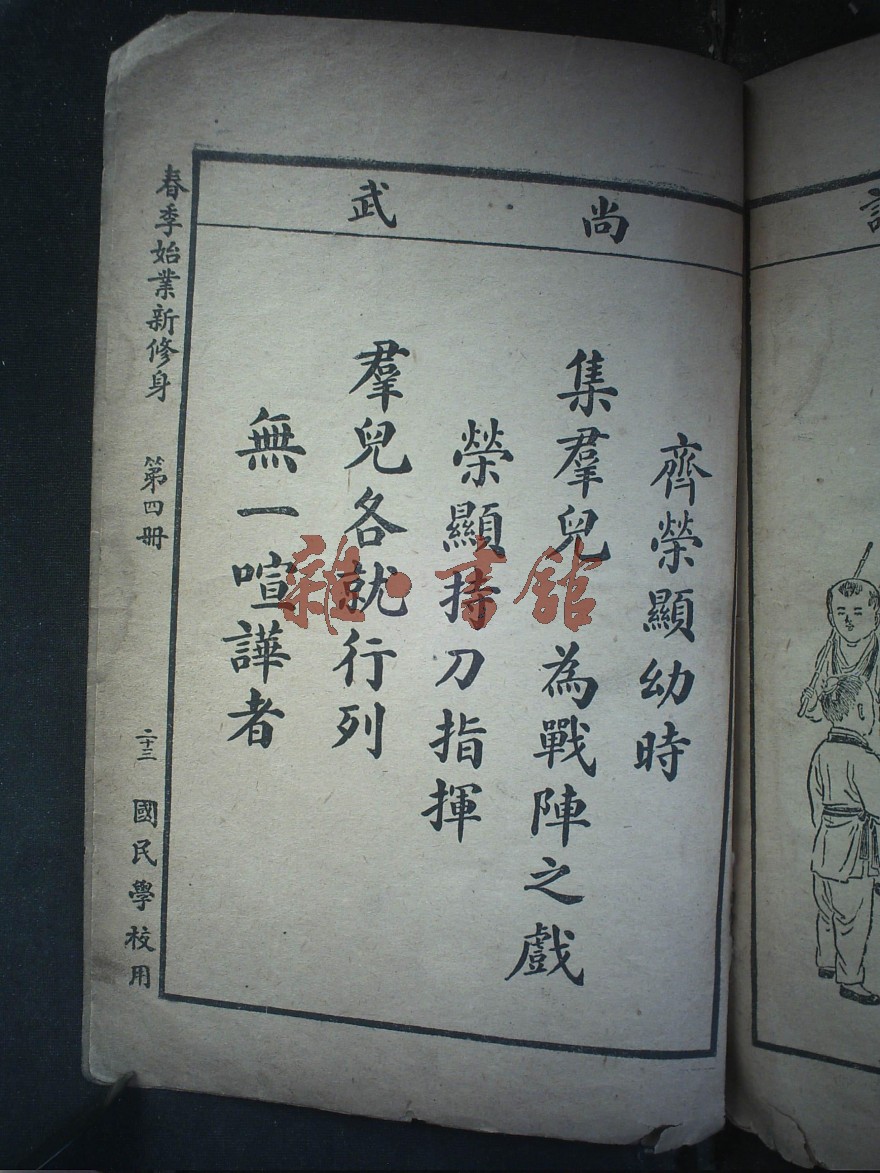 尚武
齊榮顯幼時
集羣兒為戰陣之戲
榮顯持刀指揮
羣兒各就行列
無一喧譁者
春季始業新修身 第四册 二十三 國民學校用
雜·書館